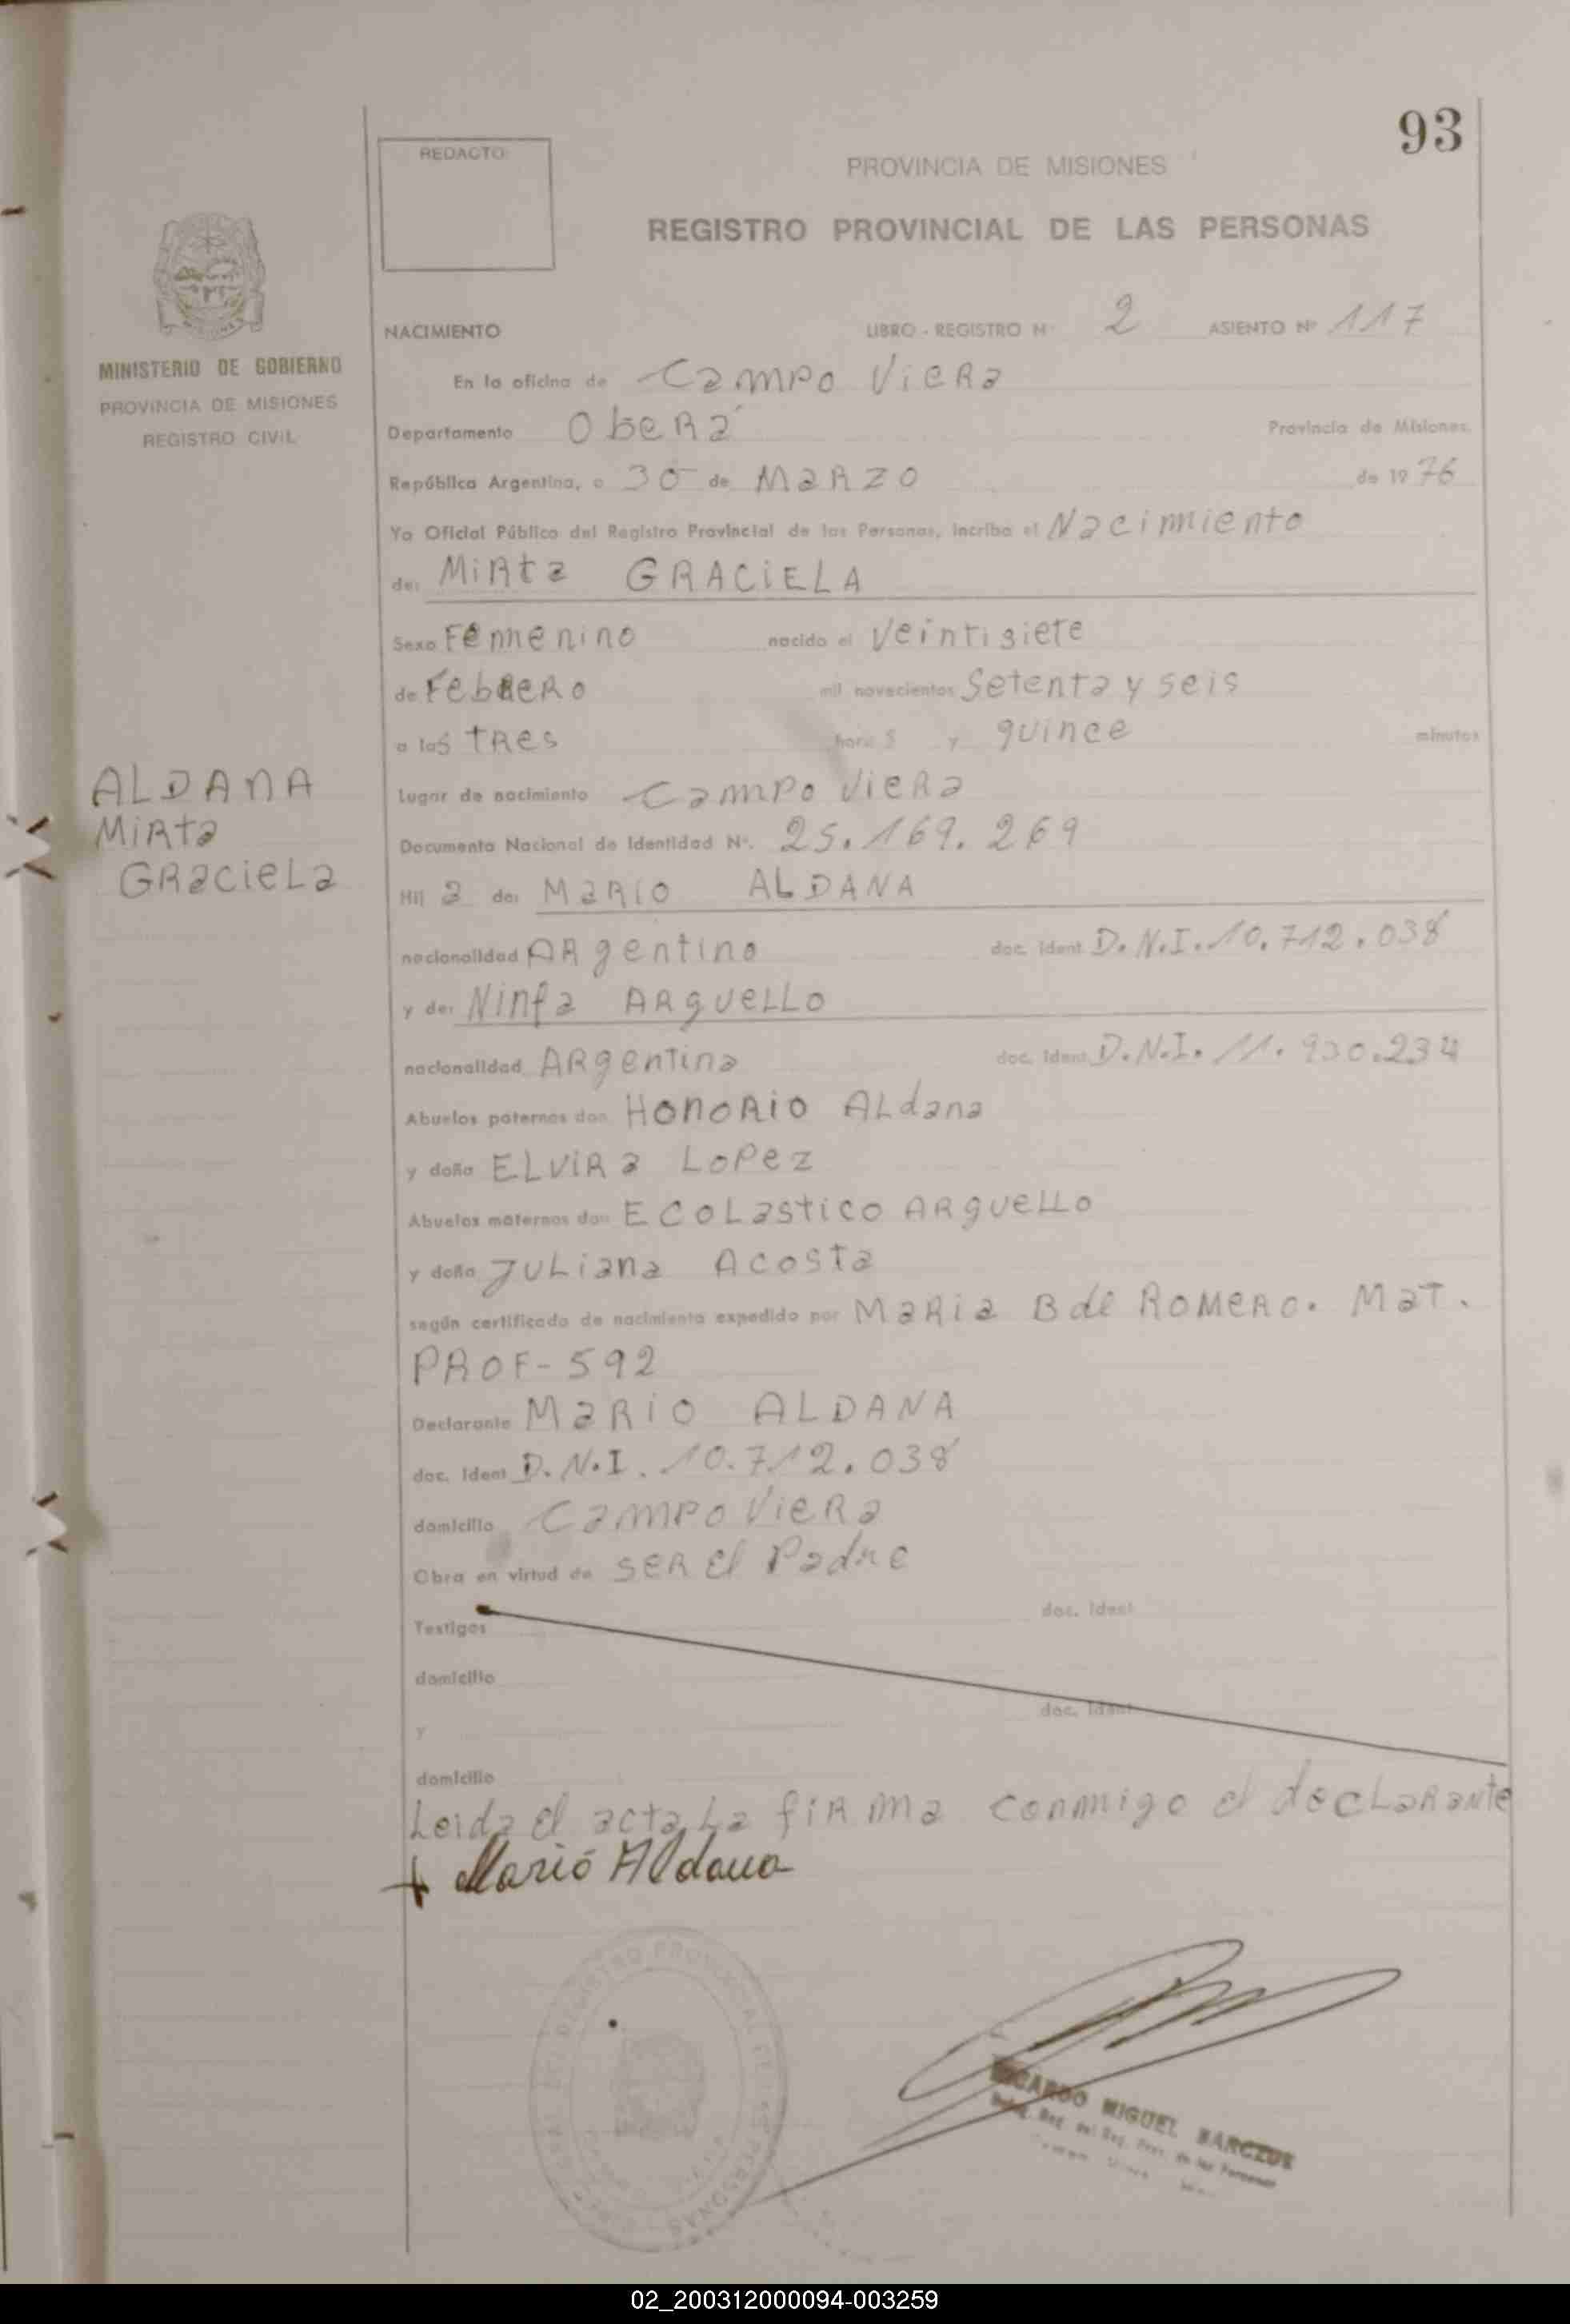 93
REDACTO
PROVINCIA DE MISIONES
REGISTRO PROVINCIAL DE LAS PERSONAS
MINISTERIO DE GOBIERNO
PROVINCIA DE MISIONES
REGISTRO CIVIL
NACIMIENTO LIBRO - REGISTRO N° 2 ASIENTO N° 117
En la oficina de Campo Viera
Departamento Oberá Provincia de Misiones.
República Argentina, a 30 de MARZO de 1976
Yo Oficial Público del Registro Provincial de las Personas, incribo el Nacimiento
de: Mirta GRACIELA
Sexo Femenino nacido el Veintisiete
de Febrero mil novecientos Setenta y seis
a las tres horas y quince minutos
ALDANA
Mirta
Graciela
Lugar de nacimiento Campo Viera
Documento Nacional de Identidad N°. 25.169.269
Hij a de: Mario ALDANA
nacionalidad Argentino doc. ident D.N.I. 10.712.038
y de: Ninfa Arguello
nacionalidad Argentina doc. ident D.N.I. 11.930.234
Abuelos paternos don Honorio Aldana
y doña Elvira Lopez
Abuelos maternos don Ecolastico Arguello
y doña Juliana Acosta
según certificado de nacimiento expedido por Maria B de Romero. Mat.
PROF-592
Declarante Mario ALDANA
doc. ident D.N.I. 10.712.038
domicilio Campo Viera
Obra en virtud de ser el Padre
Testigos doc. ident
domicilio
y doc. ident
domicilio
Leida el acta La firma conmigo el declarante
+ Marió Aldana
REGISTRO PROVINCIAL DE LAS PERSONAS
RICARDO MIGUEL
02_200312000094-003259